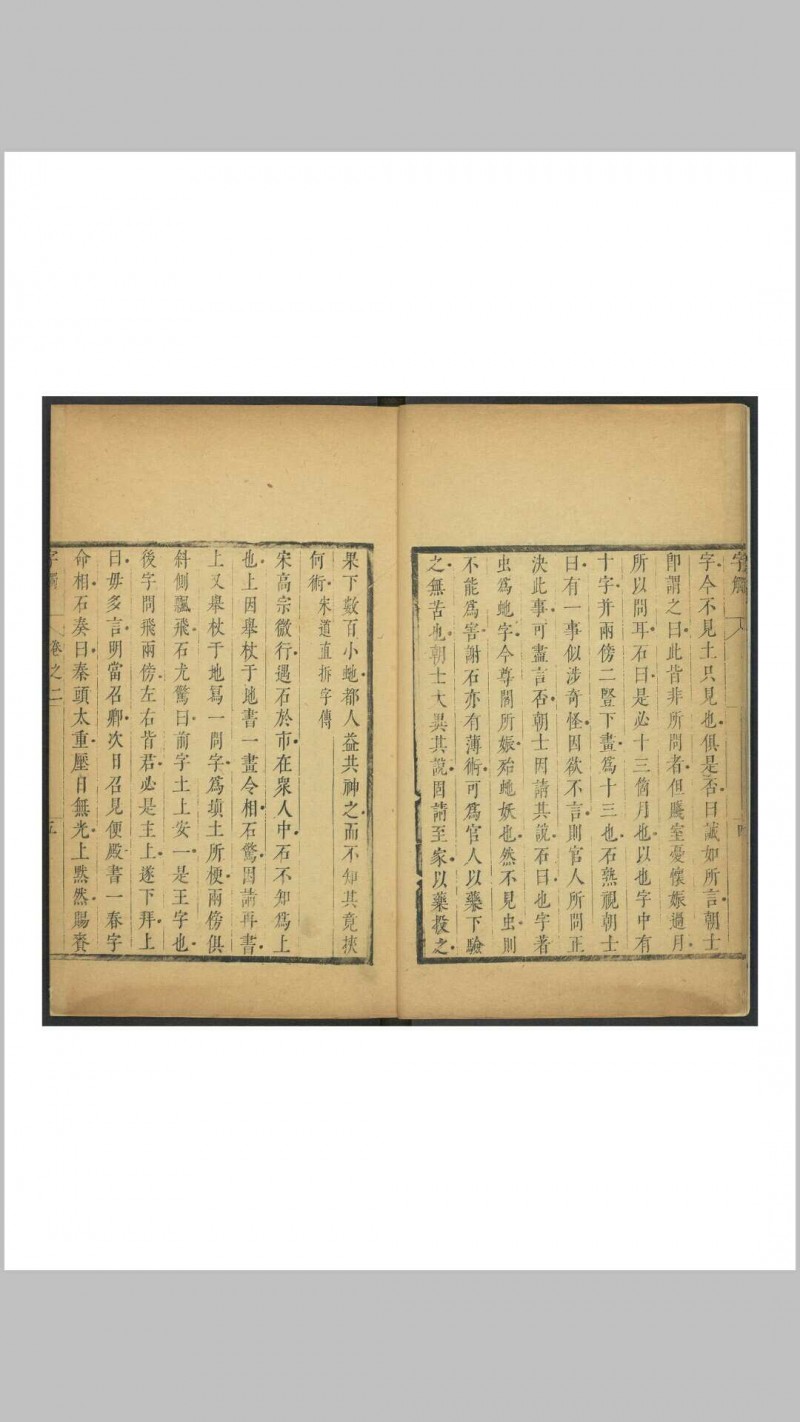 字觸
字今不見土只見也俱是否曰誠如所言朝士
即謂之曰此皆非所問者但賤室憂懷娠過月
所以問耳石曰是必十三箇月也以也字中有
十字并兩傍二豎下畫為十三也石熟視朝士
曰有一事似涉奇怪因欲不言則官人所問正
決此事可盡言否朝士因請其說石曰也字著
虫為虵字今尊閤所娠殆虵妖也然不見虫則
不能為害謝石亦有薄術可為官人以藥下驗
之無苦也朝士大異其說因請至家以藥投之
果下數百小虵都人益共神之而不知其竟挾
何術 宋道直拆字傳
宋高宗微行遇石於市在眾人中石不知為上
也上因舉杖于地書一畫令相石驚因請再書
上又舉杖于地寫一問字為墳土所梗兩傍俱
斜側飄飛石尤驚曰前字土上安一是王字也
後字問飛兩傍左右皆君必是主上遂下拜上
曰毋多言明當召卿次日召見便殿書一春字
命相石奏曰秦頭太重壓日無光上默然賜賚
字觸 卷之二 五